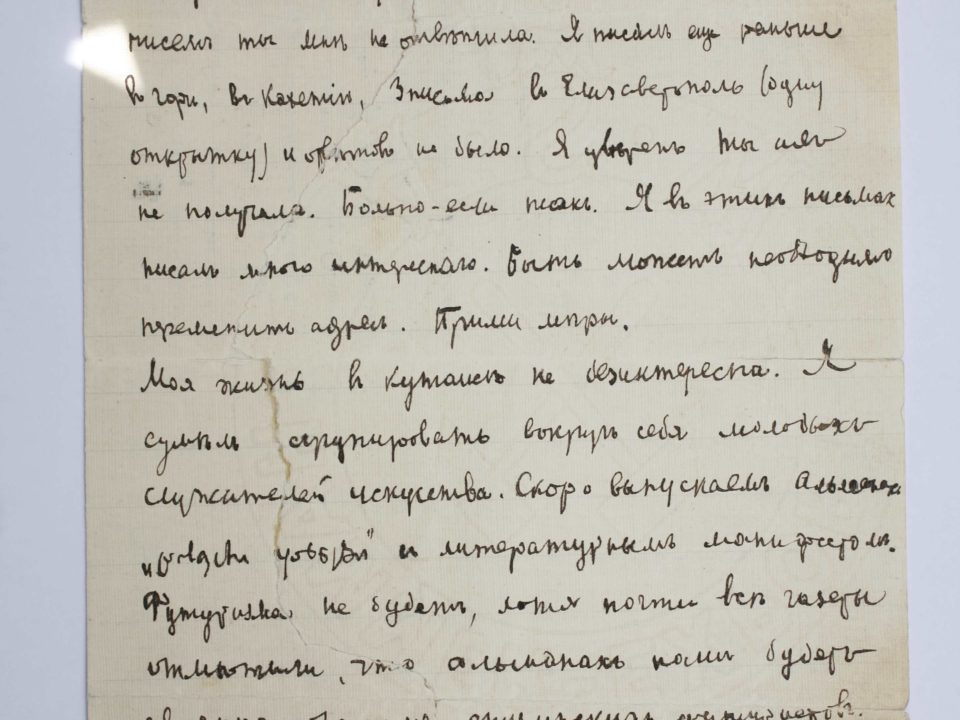 писемъ ты мнѣ не отвѣтила. Я писалъ еще раньше
в Гори, в Кахетіи, 3 письма в Елизаветполь (одну
открытку) и отвѣтовъ не было. Я увѣренъ ты ихъ
не получала. Больно - если такъ. Я в этихъ письмах
писалъ много интереснаго. Быть можетъ необходимо
перемѣнить адрес. Прими мѣры.
Моя жизнь в Кутаисѣ не безинтересна. Я
сумѣлъ сгрупировать вокругъ себя молодыхъ
служителей искусства. Скоро выпускаемъ альманах
и литературнымъ манифестомъ.
Футуризма не будетъ, хотя почти всѣ газеты
отмѣтили, что альманахъ нами будетъ
футуристовъ.